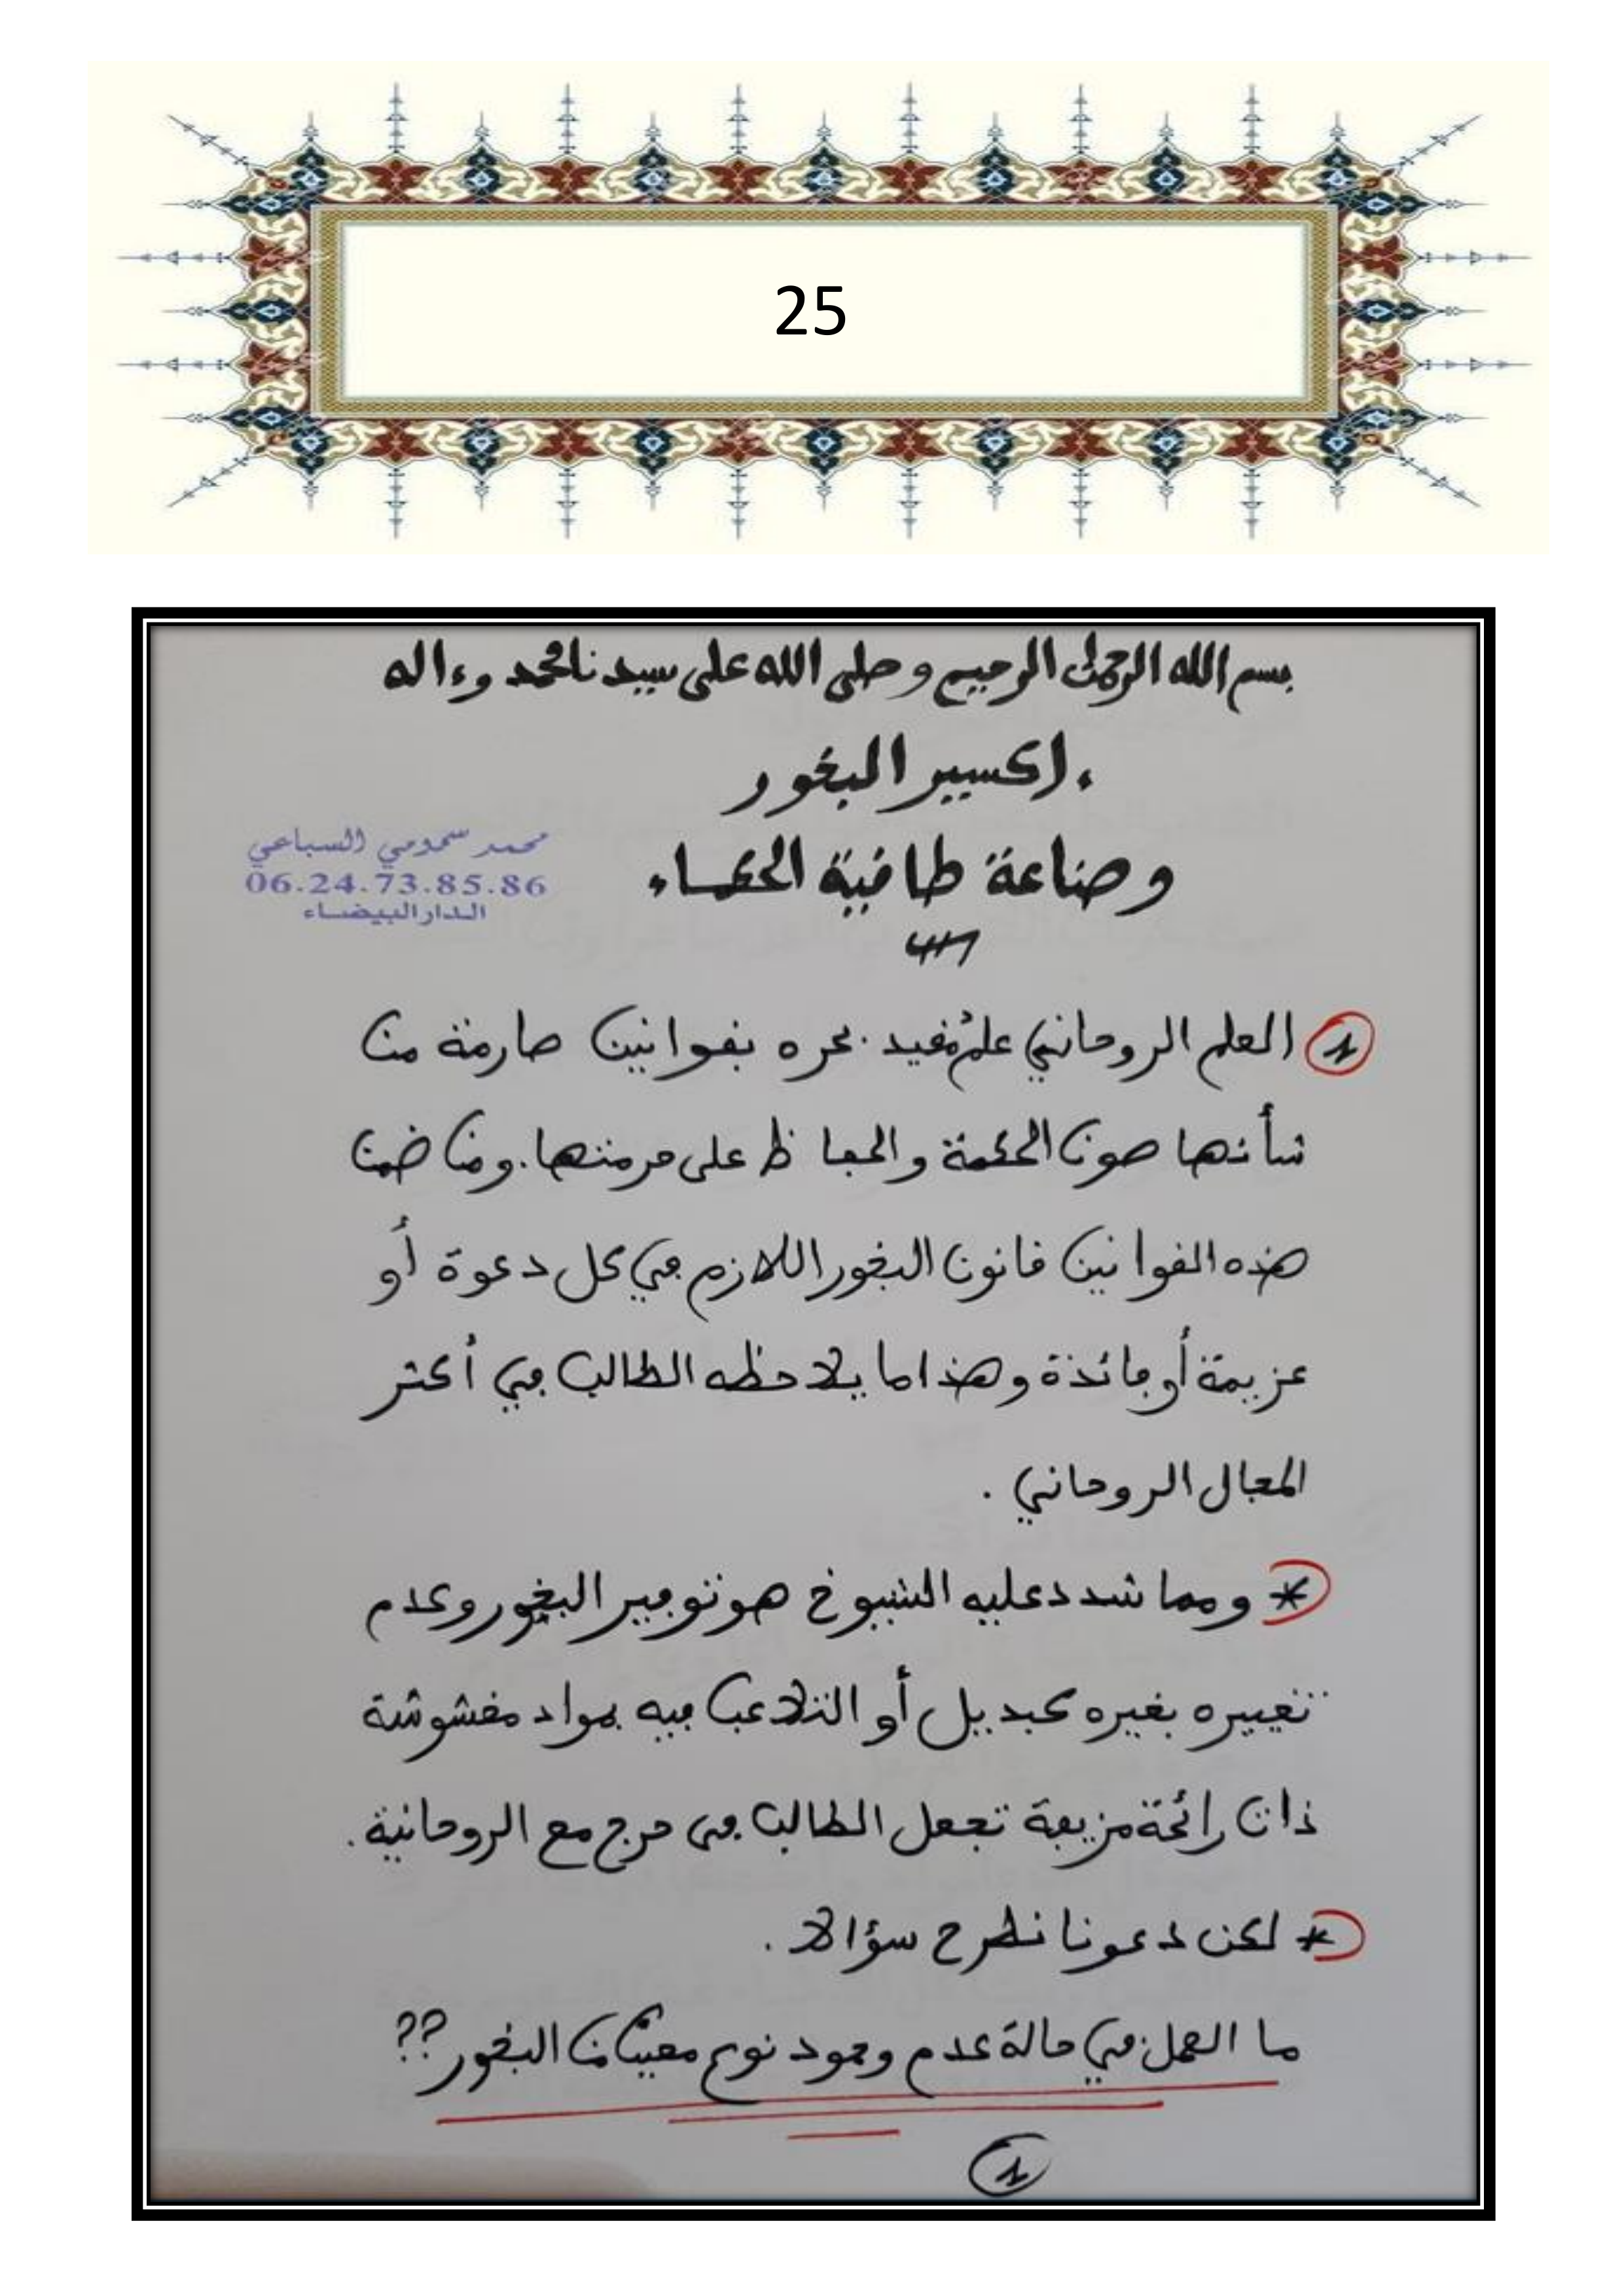 25
بسم الله الرحمن الرحيم وصلى الله على سيدنا محمد وءاله
إكسير البخور
وصناعة طاقية الحكماء
محمد سمومي السباعي
06.24.73.85.86
الدار البيضاء
1 العلم الروحاني علم مفيد بحره بقوانين صارمة من
شأنها صون الحكمة والحفاظ على حرمتها. ومن ضمن
هذه القوانين قانون البخور اللازم في كل دعوة أو
عزيمة أو فائدة وهذا ما يلاحظه الطالب في أكثر
المجال الروحاني .
* ومما شدد عليه الشيوخ هو توفير البخور وعدم
تغييره بغيره كبديل أو التلاعب فيه بمواد مغشوشة
ذات رائحة مزيفة تجعل الطالب في حرج مع الروحانية.
* لكن دعونا نطرح سؤالا .
ما العمل في حالة عدم وجود نوع معين من البخور ??
1